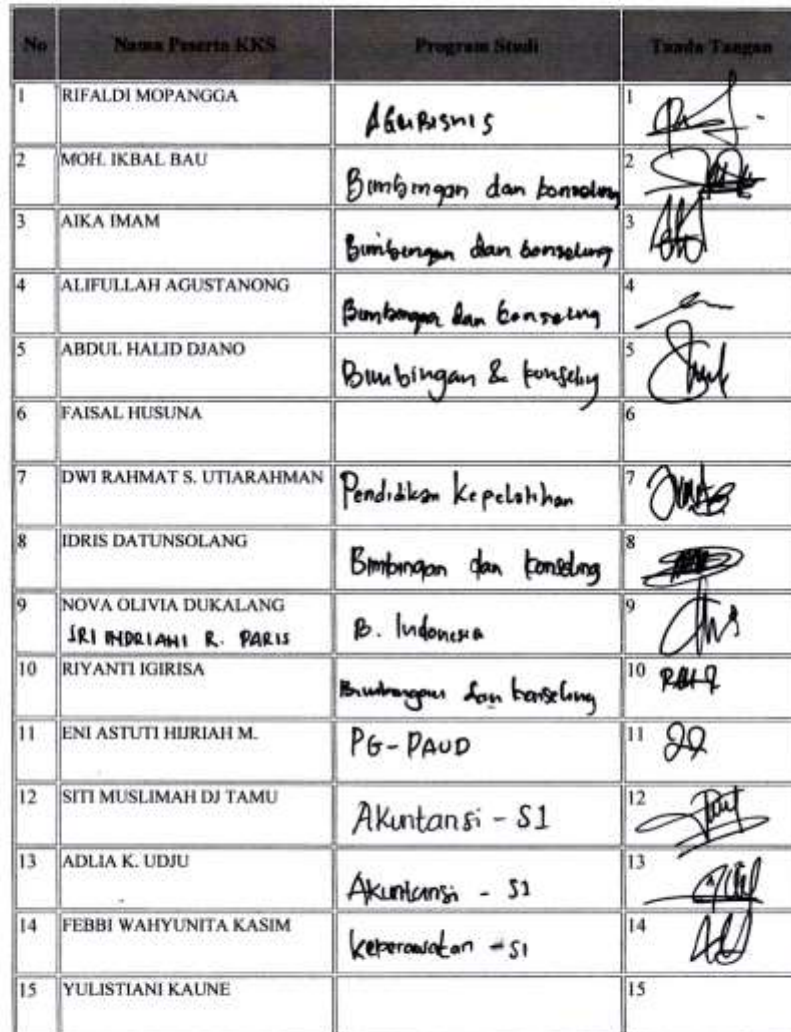 No Nama Peserta KKS Program Studi Tanda Tangan
1 RIFALDI MOPANGGA AGRIBISNIS 1
2 MOH. IKBAL BAU Bimbingan dan konseling 2
3 AIKA IMAM Bimbingan dan konseling 3
4 ALIFULLAH AGUSTANONG Bimbingan dan konseling 4
5 ABDUL HALID DJANO Bimbingan & konseling 5
6 FAISAL HUSUNA 6
7 DWI RAHMAT S. UTIARAHMAN Pendidikan Kepelatihan 7
8 IDRIS DATUNSOLANG Bimbingan dan konseling 8
9 NOVA OLIVIA DUKALANG 9
SRI INDRIANI R. PARIS B. Indonesia
10 RIYANTI IGIRISA Bimbingan dan konseling 10
11 ENI ASTUTI HIJRIAH M. PG-PAUD 11
12 SITI MUSLIMAH DJ TAMU Akuntansi - S1 12
13 ADLIA K. UDJU Akuntansi - S1 13
14 FEBBI WAHYUNITA KASIM keperawatan - S1 14
15 YULISTIANI KAUNE 15